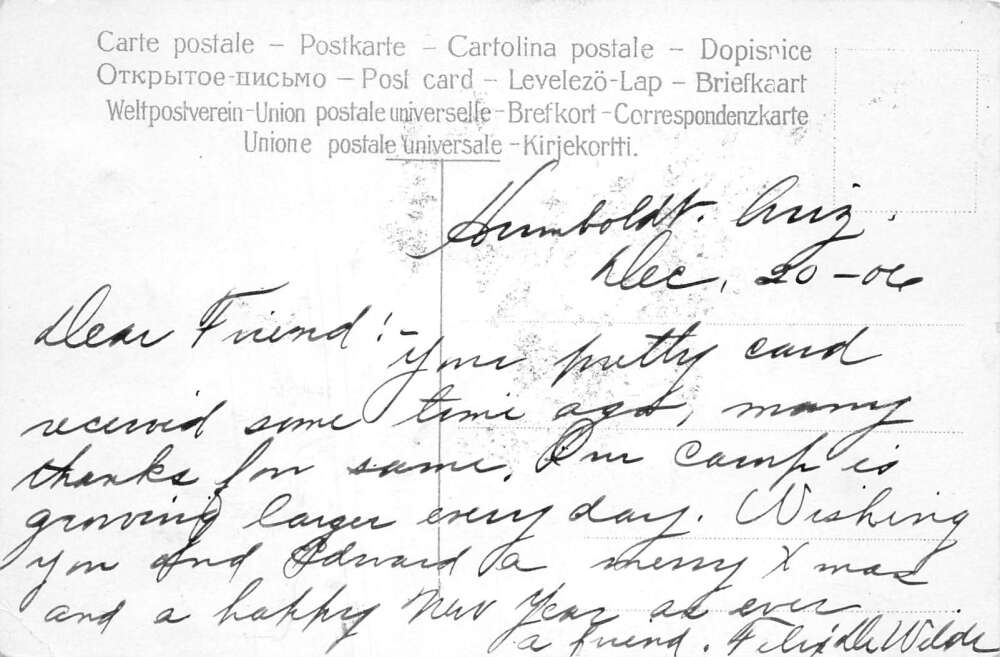 Carte postale – Postkarte – Cartolina postale – Dopisnice
Открытое-письмо – Post card – Levelezö-Lap – Briefkaart
Weltpostverein-Union postale universelle-Brefkort-Correspondenzkarte
Unione postale universale-Kirjekortti.
Humboldt. Ariz.
Dec, 20-06
Dear Friend!-
Your pretty card
received some time ago, many
thanks for same. Our camp is
growing larger every day. Wishing
you and Edward a merry Xmas
and a happy New Year as ever
a friend. Felix De Wilde